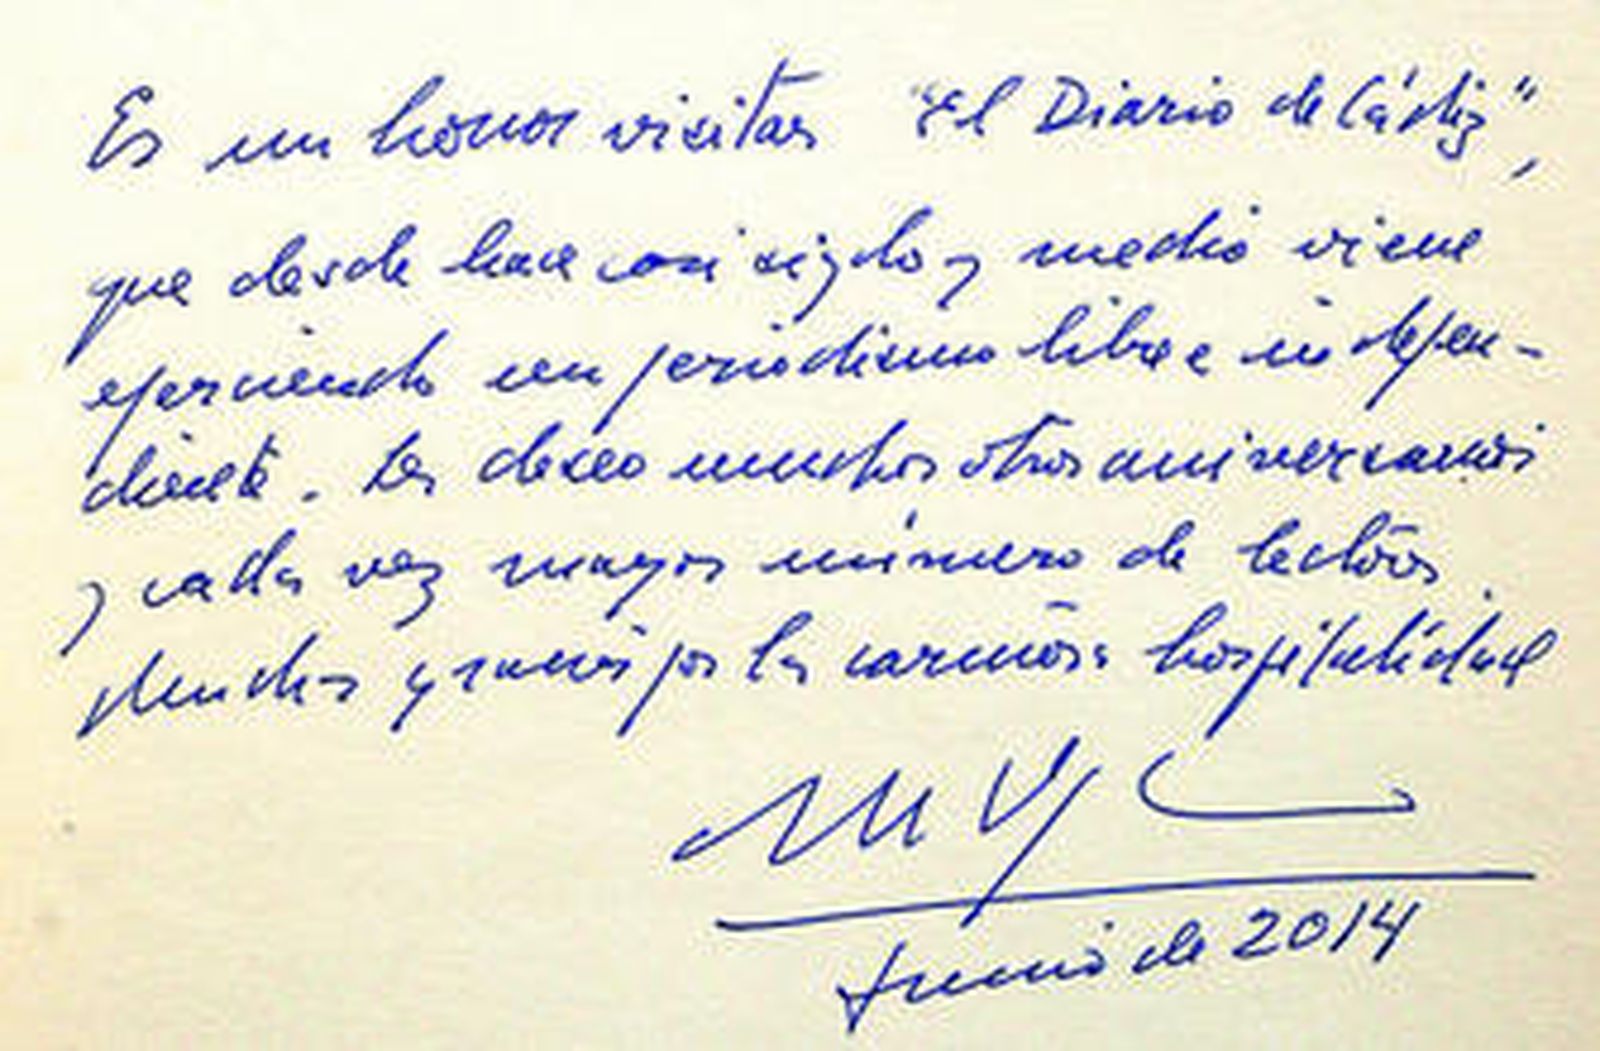 Es un honor visitar "El Diario de Cádiz",
que desde hace casi siglo y medio viene
ejerciendo un periodismo libre e indepen-
diente. Les deseo muchos otros aniversarios
y cada vez mayor número de lectores.
Muchas gracias por la cariñosa hospitalidad
Junio de 2014